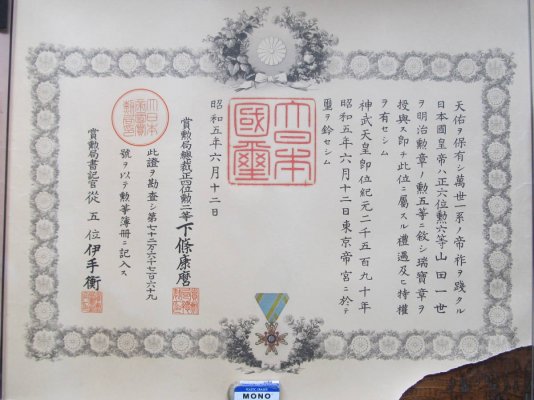 天佑ヲ保有シ萬世一系ノ帝祚ヲ踐タル
日本國皇帝ハ正六位勲六等山田一世
ヲ明治勲章ノ勲五等ニ敘シ瑞寶章ヲ
授與ス即チ此位ニ屬スル禮遇及ヒ特權
ヲ有セシム
神武天皇即位紀元二千五百九十年
昭和五年六月十二日東京帝宮ニ於テ
璽ヲ鈐セシム
大日本國璽
昭和五年六月十二日
賞勲局總裁正四位勲二等下條康麿
此證ヲ勘査シ第七十二万六千七百六十九
號ヲ以テ勲等簿冊ニ記入ス
賞勲局書記官從五位伊手衡
PLASTIC ERASER
MONO